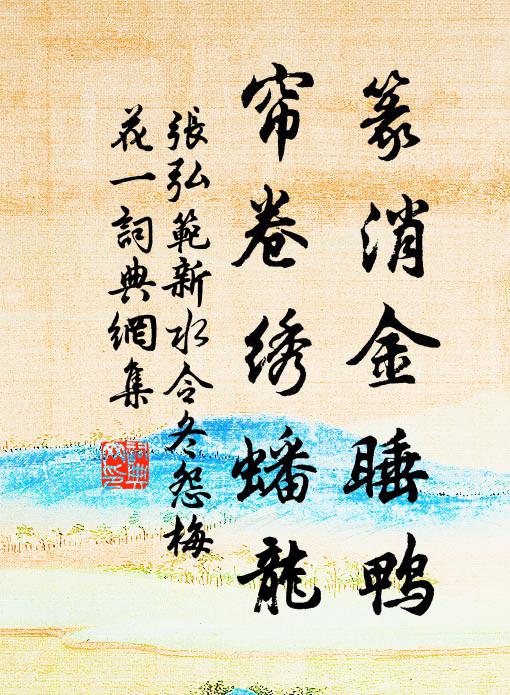 篆消金睡鴨
帘卷绣蟠龍
張弘範新水令冬怨梅
花一詞典網集